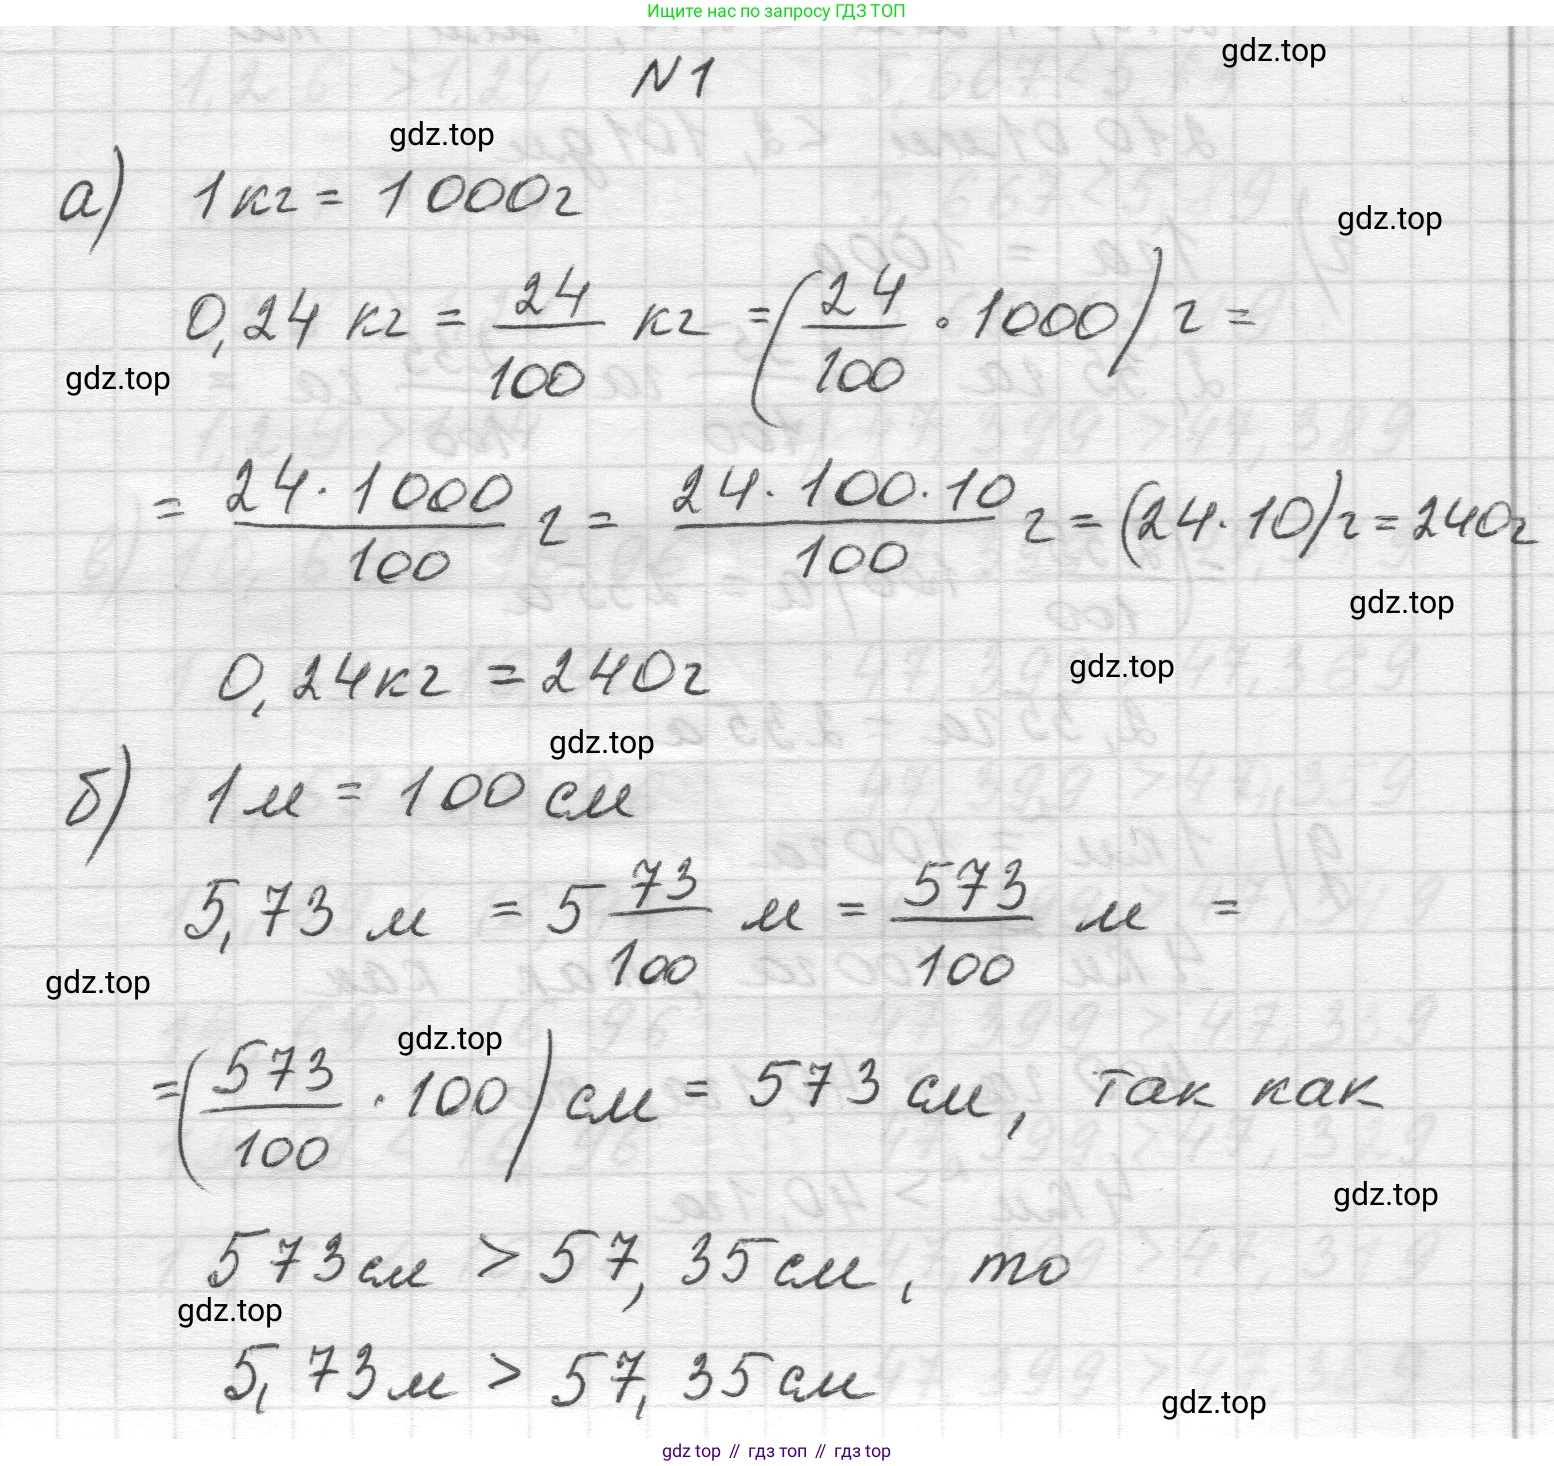 Ищите нас по запросу ГДЗ ТОП
gdz.top
N 1
gdz.top
а) 1 кг = 1000 г
gdz.top
0,24 кг = 24/100 кг = (24/100 · 1000) г =
gdz.top
= 24 · 1000/100 г = 24 · 100 · 10/100 г = (24 · 10) г = 240 г
gdz.top
0,24 кг = 240 г
gdz.top
gdz.top
б) 1 м = 100 см
5,73 м = 5 73/100 м = 573/100 м =
gdz.top
gdz.top
= (573/100 · 100) см = 573 см, так как
gdz.top
573 см > 57,35 см, то
gdz.top
5,73 м > 57,35 см
gdz.top
gdz top // гдз топ // гдз top